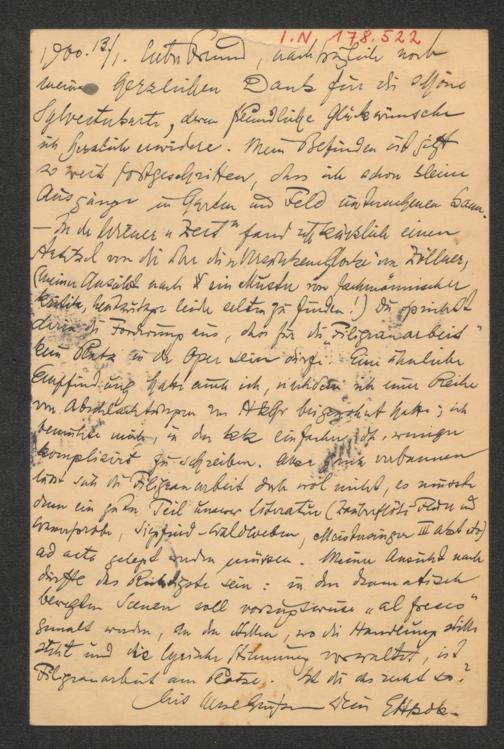 I.N. 178.522
1900. 13/1. Lieber Freund, nachträglich noch
meinen herzlichen Dank für die schöne
Sylvesterkarte, deren freundliche Glückwünsche
ich herzlich erwidere. Mein Befinden ist jetzt
so weit fortgeschritten, dass ich schon kleine
Ausgänge in Garten und Feld unternehmen kann.
— In der Wiener „Zeit" fand ich kürzlich einen
Artikel von dir über die Versunkene Glocke von Zöllner,
(meiner Ansicht nach ein Muster von fachmännischer
Kritik, heutzutage leider selten zu finden!) Du sprichst
darin die Forderung aus, dass für die „Filigranarbeit"
kein Platz in der Oper sein dürfe. Eine ähnliche
Empfindung hatte auch ich, nachdem ich einer Reihe
von beigewohnt hatte; ich
bemühte mich, in der einfacher, d.h. weniger
komplicirt zu schreiben. Aber verbannen
lässt sich die Filigranarbeit doch wol nicht, es müsste
denn ein guter Teil unserer Literatur (Zauberflöte-Feuer und
Wasserprobe, Siegfried-Waldweben, Meistersinger III akt etc)
ad acta gelegt werden müssen. Meine Ansicht nach
dürfte das Richtigste sein: in den dramatisch
bewegten Scenen soll vorzugsweise „al fresco"
gemalt werden, an den Stellen, wo die Handlung stille
steht und die lyrische Stimmung vorwaltet, ist
Filigranarbeit am Platze. Ist dir das recht so?
Mit Dein